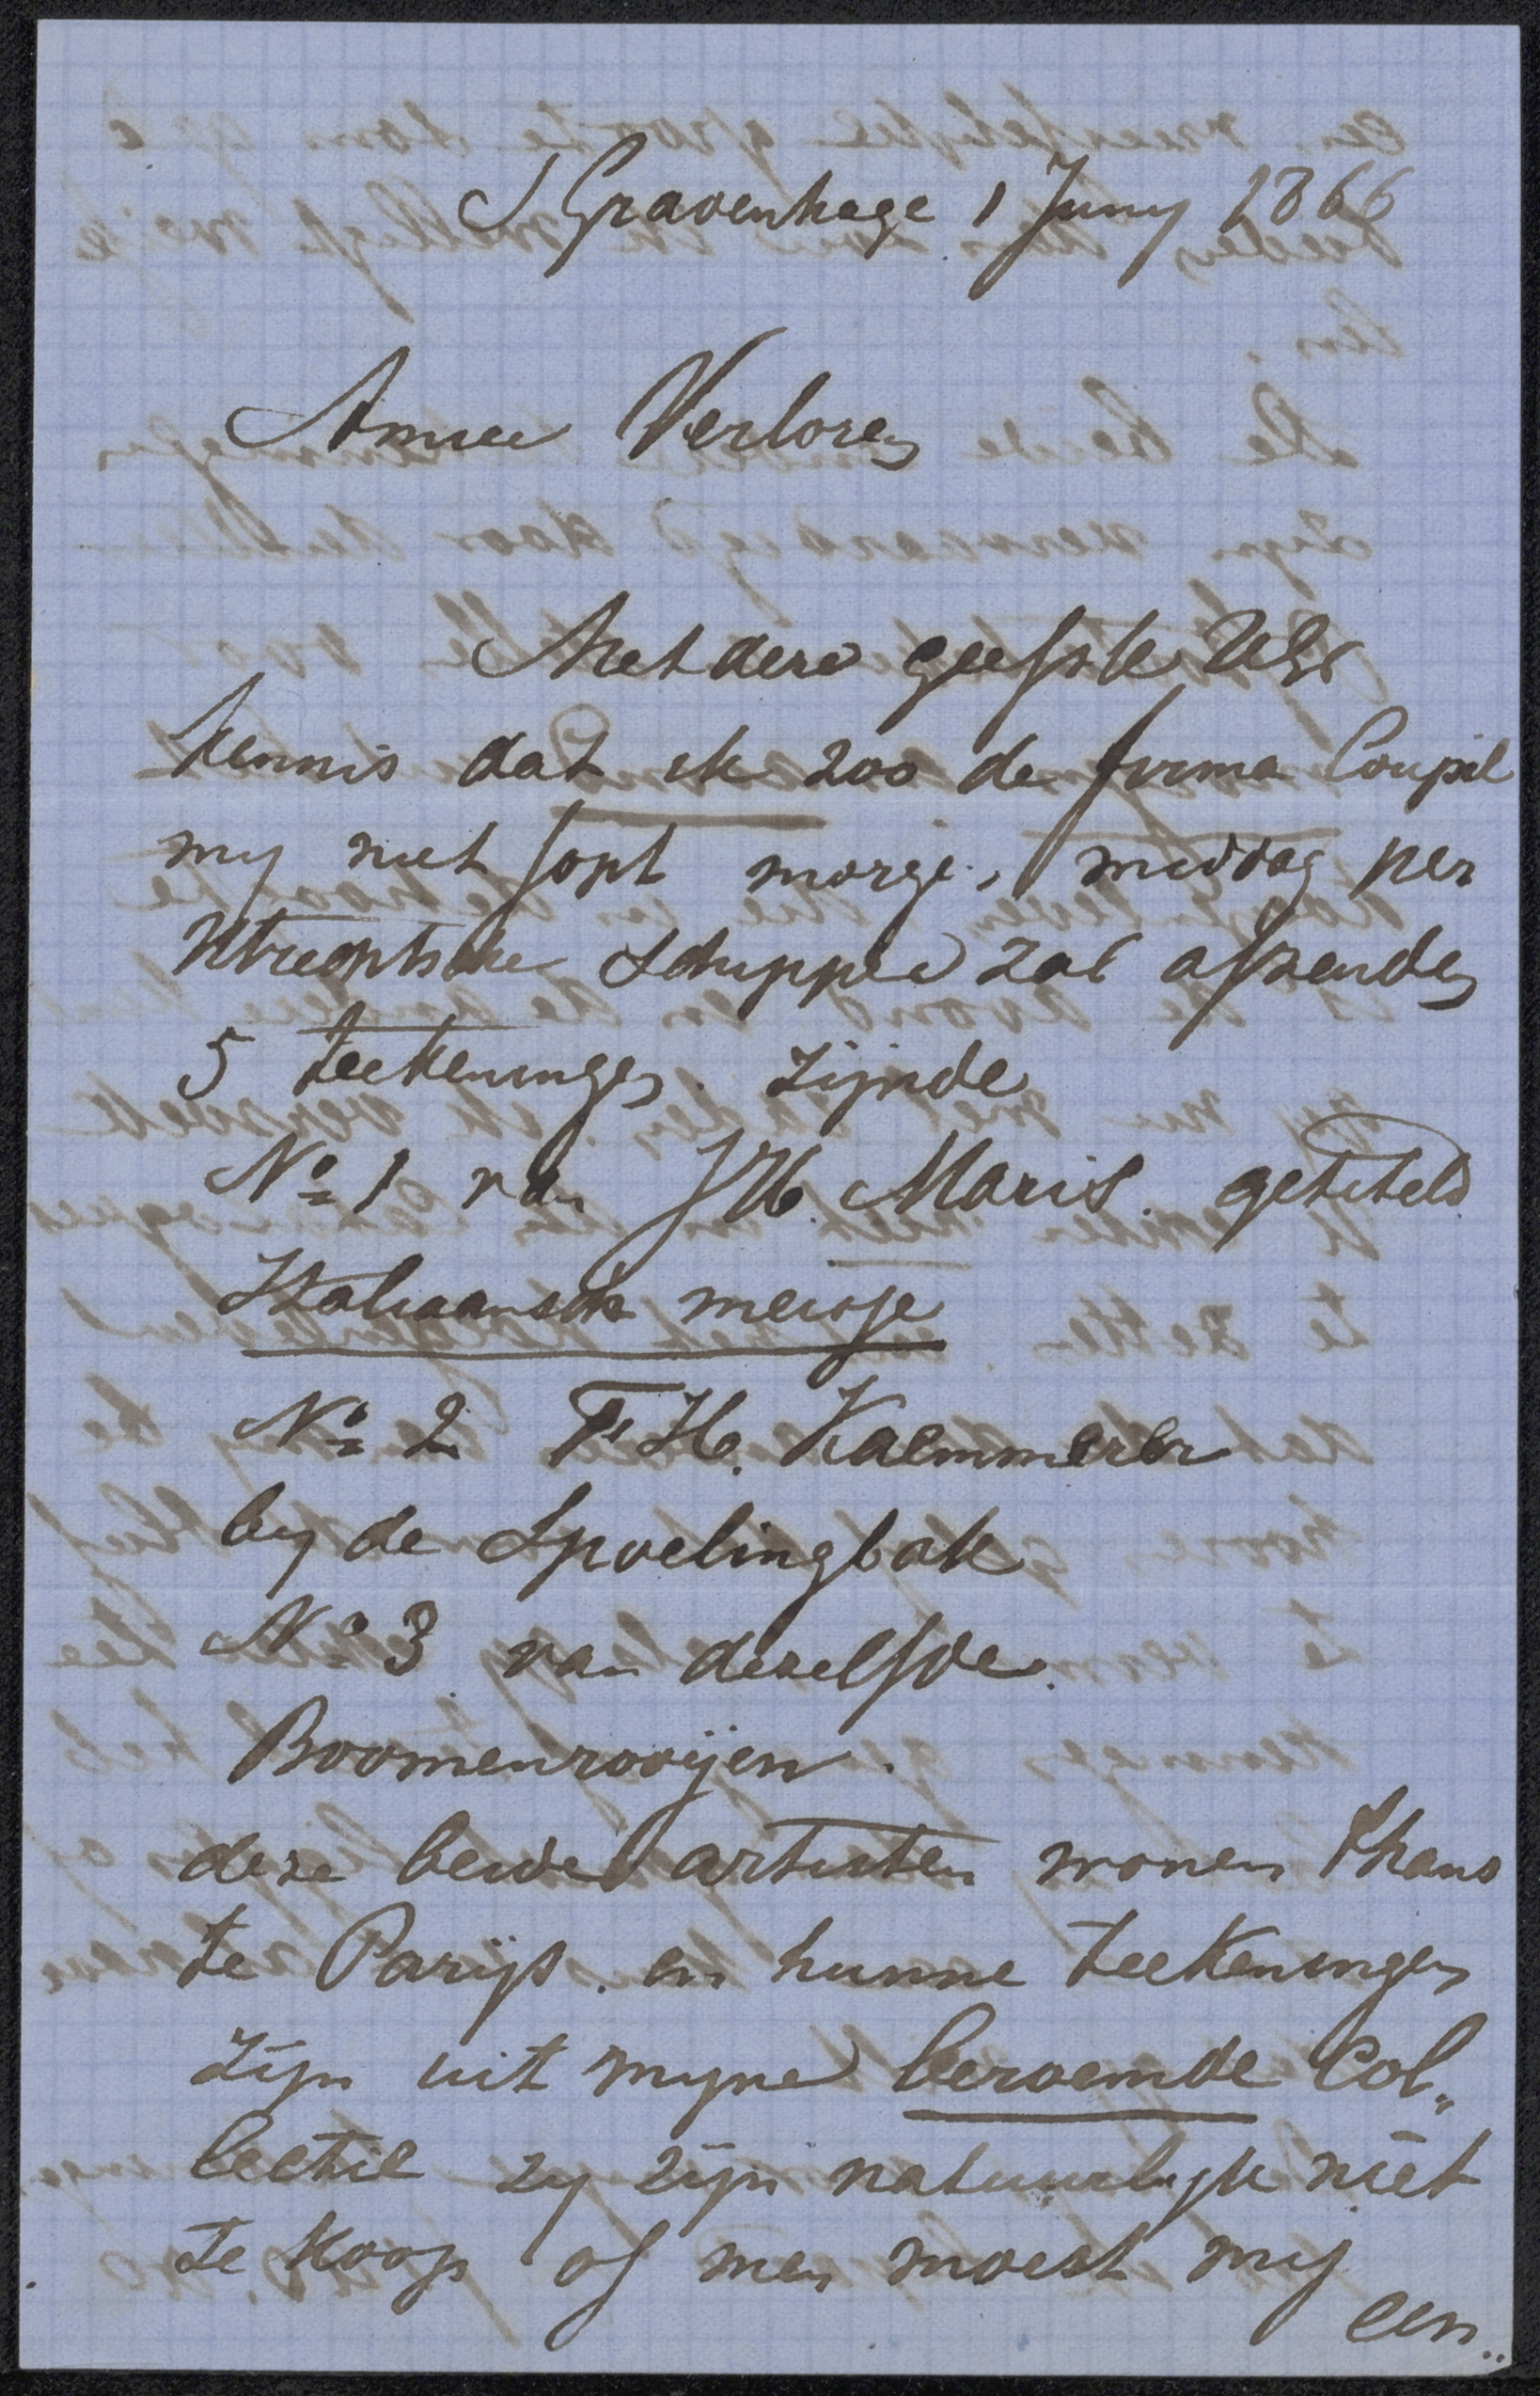 S Gravenhage 1 Juny 1866
Amice Verloren
Met deze geef ik UEd
kennis dat ik zoo de firma Goupil
my niet fopt morge, middag per
Utrechtsche Schipper zal afzenden
5 teekeningen. zijnde
No 1 van J H. Maris. getiteld
Italiaansch meisje
No 2 F. H. Kaemmerer
by de Spoelingbak
No 3 van dezelfde.
Boomenrooijen.
deze beide artisten wonen thans
te Parijs. en hunne teekeningen
zijn uit myne beroemde Col„
lectie zy zijn natuurlyk niet
te koop of men moest my
een..